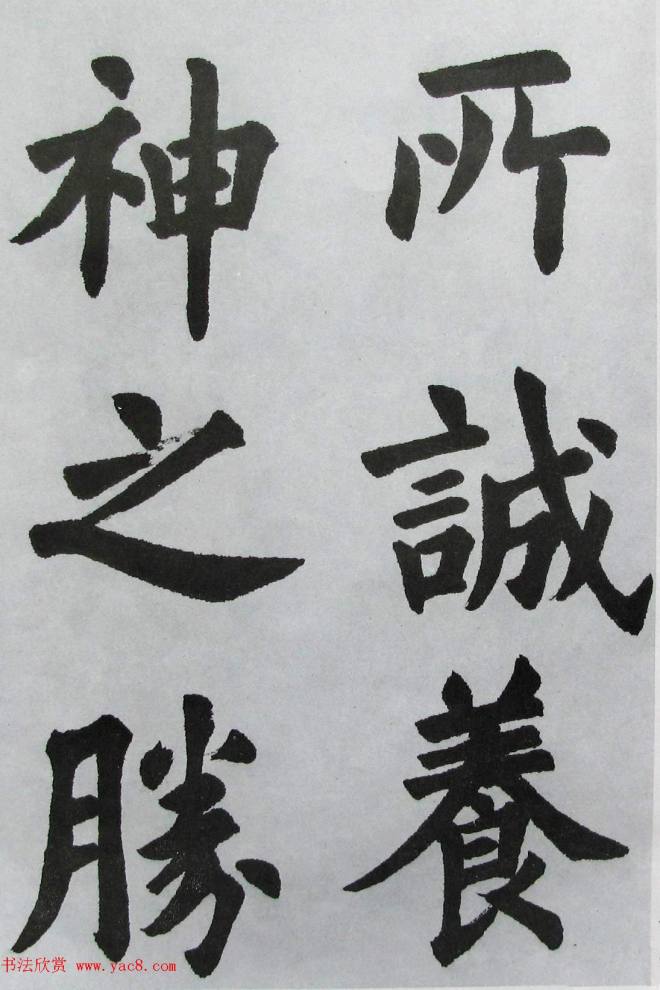 所誠養
神之勝
书法欣赏 www.yac8.com